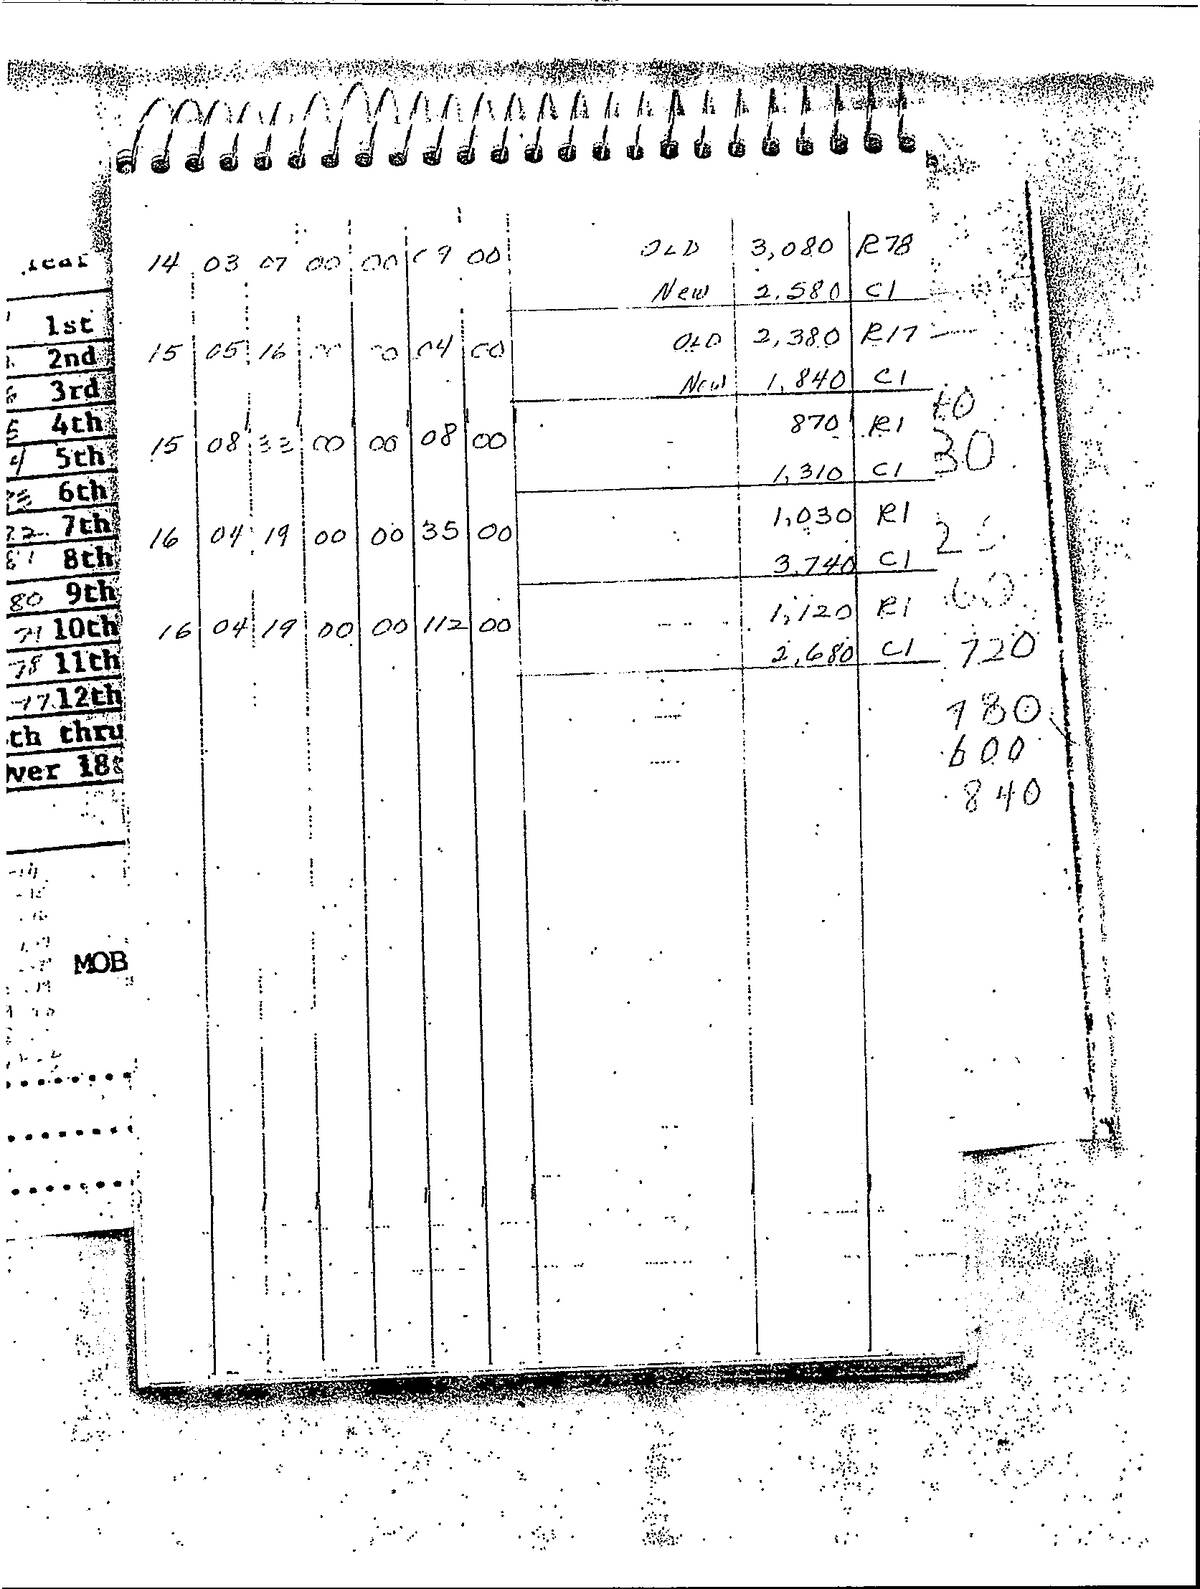 14 03 07 00 00 09 00 OLD 3,080 R78
New 2,580 C1
15 05 16 00 00 04 00 OLD 2,380 R17
New 1,840 C1
15 08 33 00 00 08 00 870 R1
1,310 C1
16 04 19 00 00 35 00 1,030 R1
3,740 C1
16 04 19 00 00 112 00 1,120 R1
2,680 C1
1st
2nd
3rd
4th
5th
6th
7th
8th
80 9th
79 10th
78 11th
77 12th
th thru
ver 18
MOB
30
60
720
780
600
840